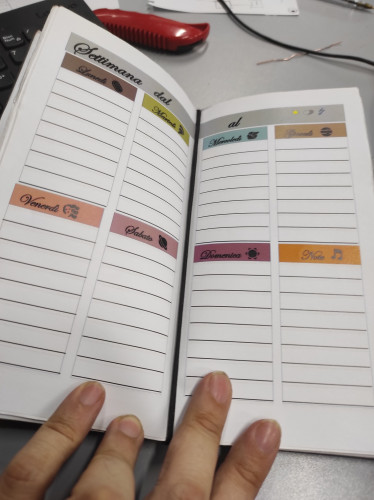 Settimana dal al
Lunedì Martedì Mercoledì Giovedì
Venerdì Sabato Domenica Note